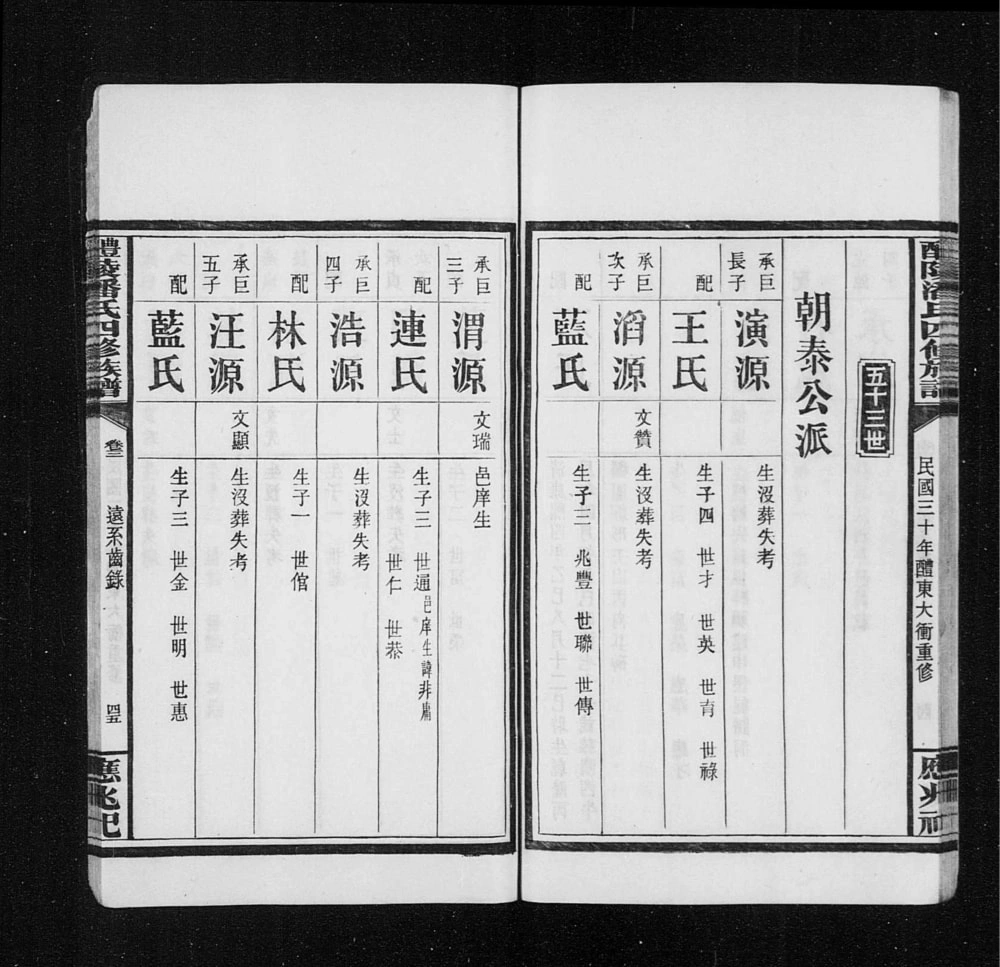 醴陵潘氏四修族譜
民國三十年醴東大衝重修
應兆祠
五十三世
朝泰公派
承巨長子
演源
生沒葬失考
配
王氏
生子四 世才 世英 世育 世祿
承巨次子
滔源
文贊
生沒葬失考
配
藍氏
生子三 兆豐 世聯 世傳
承巨三子
渭源
文瑞
邑庠生
配
連氏
生子三 世通邑庠生諱非庸
世仁 世恭
承巨四子
浩源
生沒葬失考
配
林氏
生子一 世倌
承巨五子
汪源
文顯
生沒葬失考
配
藍氏
生子三 世金 世明 世惠
醴陵潘氏四修族譜
卷三
遠系齒錄
四五
應兆祀